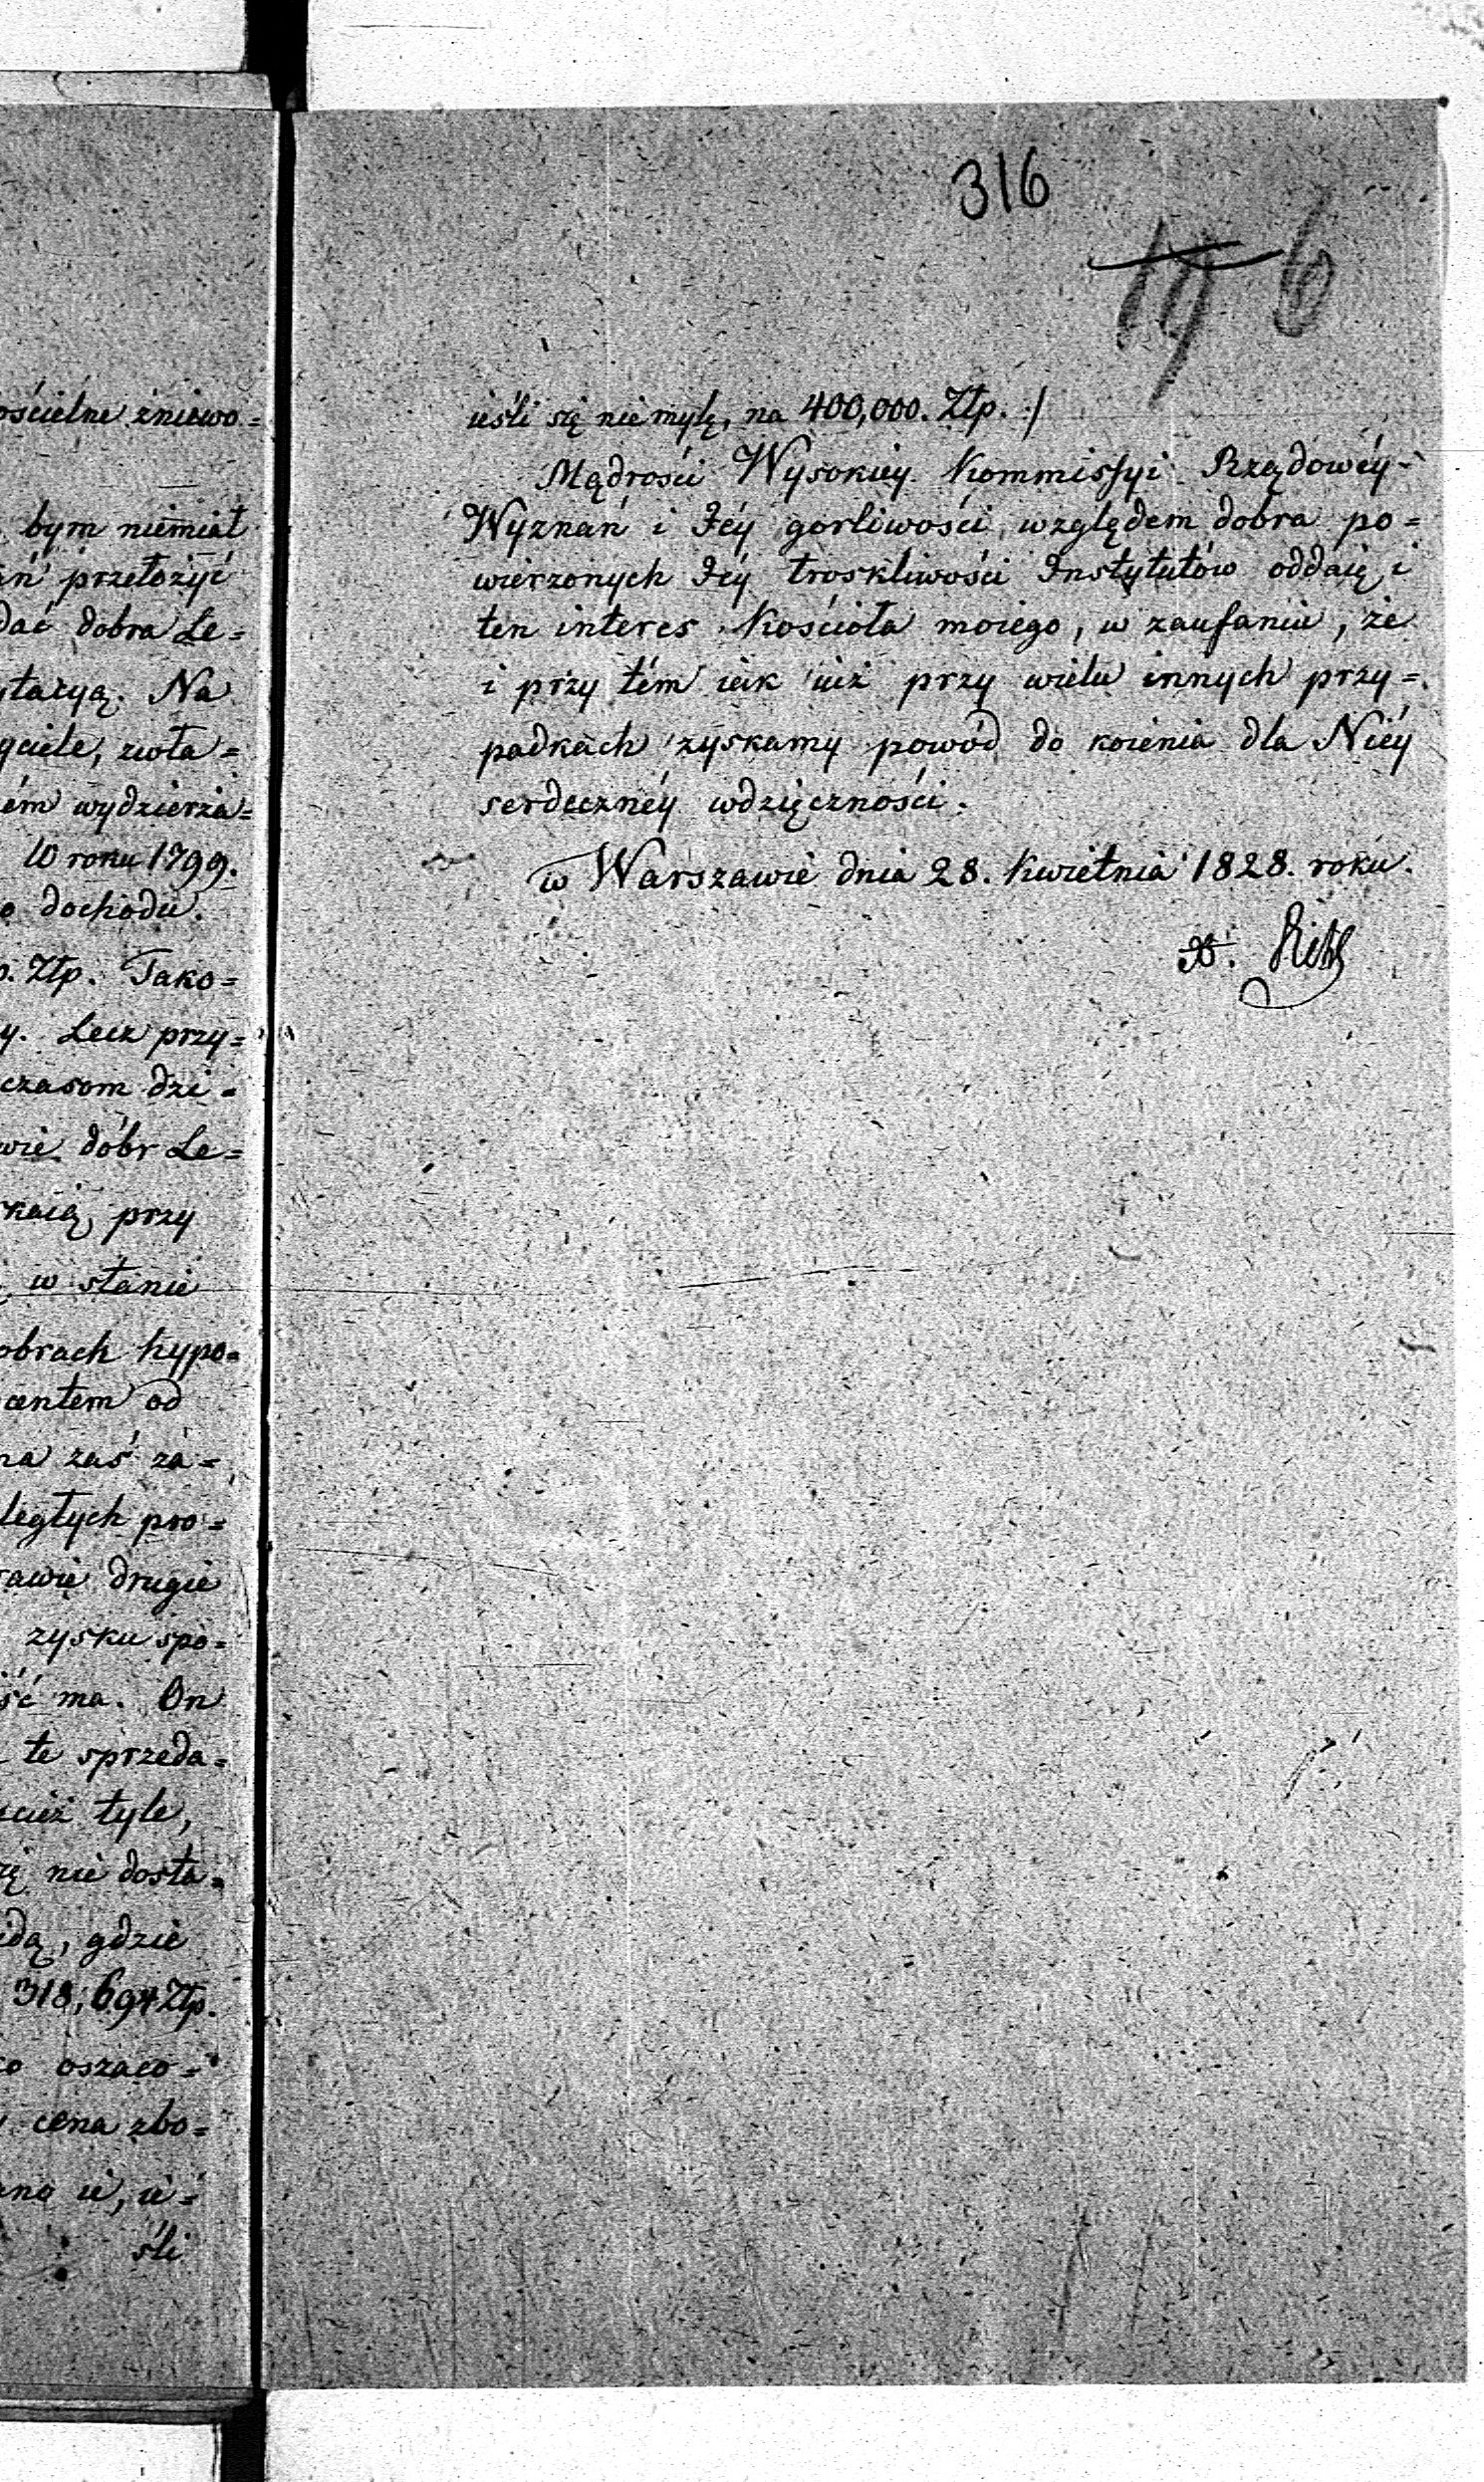 ościelne zniewo=
bym niemiał
ań przełożyć
dać dobra Le=
ytacyą. Na
yciele, zwła=
ém wydzierża=
W roku 1799.
o dochodu.
Złp. Tako=
y. Lecz przy=
czasom dzi=
wie dóbr Le=
kaią przy
w stanie
obrach hypo=
centem od
na zaś za=
ległych pro=
rawie drugie
zysku spo=
ść ma. On
te sprzeda=
cież tyle,
ię nie dosta=
edą, gdzie
318,694 Złp.
o oszaco=
cena zbo=
ano ie, ie=
śli
316
19 6
ieśli się nie mylę, na 400,000. Złp. :/
Mądrości Wysokiey Kommissyi Rządowéy
Wyznań i Jéy gorliwości względem dobra po=
wierzonych Jéy troskliwości Instytutów oddaię i
ten interes Kościoła moiego, w zaufaniu, że
i przy tém iak iuż przy wielu innych przy=
padkach zyskamy powód do koienia dla Niéy
serdecznéy wdzięczności.
w Warszawie dnia 28. Kwietnia 1828. roku.